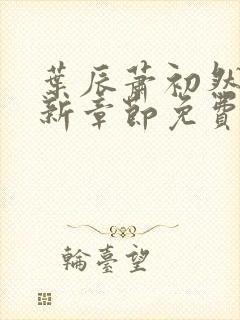 葉辰蕭初然
新章節免費
輪臺望